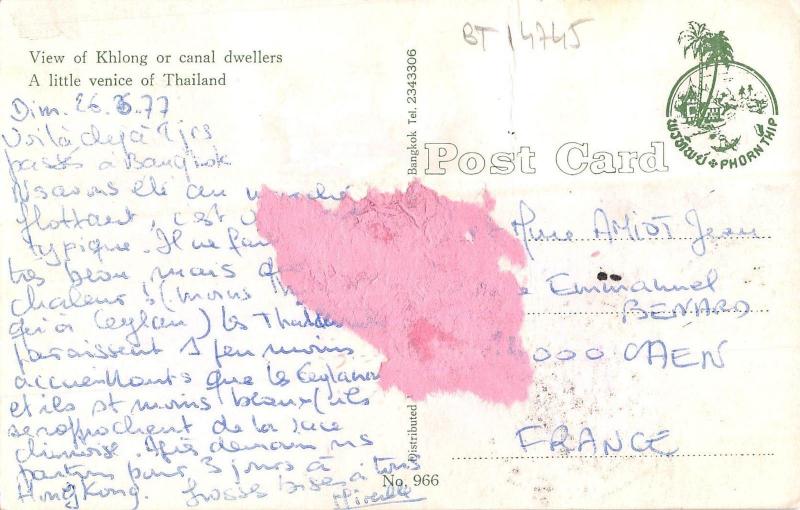 BT 14745
View of Khlong or canal dwellers
A little venice of Thailand
Dim. 26.6.77
Voilà dejà 2 jrs
passés à Bangkok
Ns avons été au
flottant, c'est
typique. Il ne fai
très beau mais
chaleur! (moins
qu'à Ceylan) Les Thaïlan
paraissent 1 peu moins
accueillants que les Ceylanais
et ils st moins beaux (ils
se rapprochent de la race
chinoise. Après demain ns
partons pour 3 jours à
HongKong. Grosses bises à tous
Mireille
Distributed
Bangkok Tel. 2343306
No. 966
Post Card
พรทิพย์ PHORN THIP
Mme AMIOT Jean
Emmanuel
BENARD
14000 CAEN
FRANCE